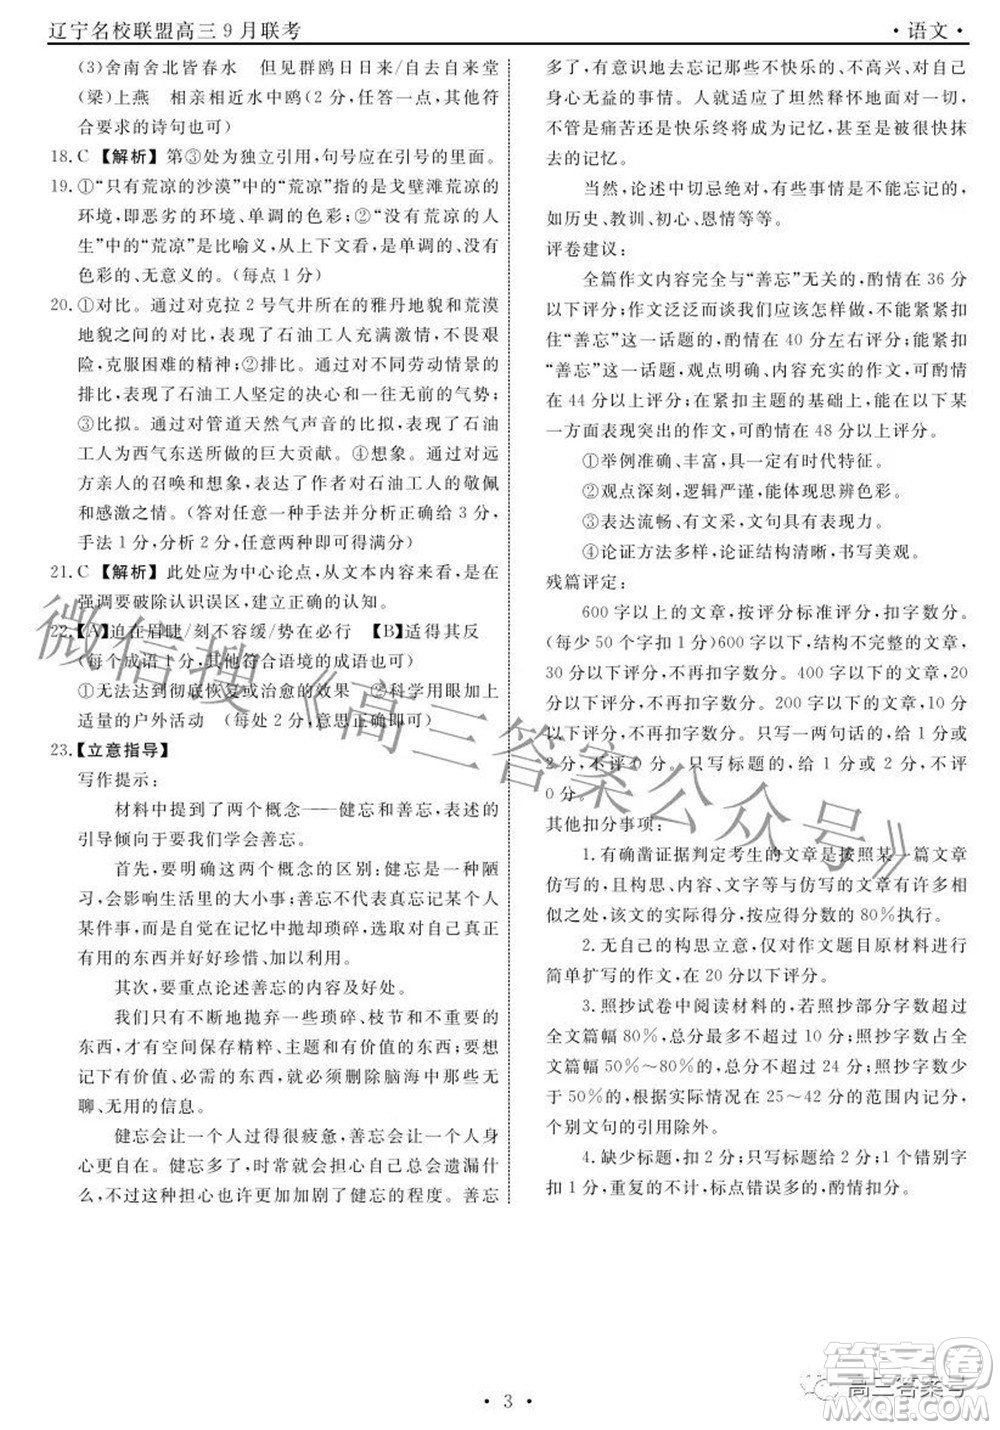 辽宁名校联盟高三9月联考
·语文·
(3)舍南舍北皆春水 但见群鸥日日来/自去自来堂
(梁)上燕 相亲相近水中鸥(2分,任答一点,其他符
合要求的诗句也可)
18.C【解析】第③处为独立引用,句号应在引号的里面。
19.①“只有荒凉的沙漠”中的“荒凉”指的是戈壁滩荒凉的
环境,即恶劣的环境、单调的色彩;②“没有荒凉的人
生”中的“荒凉”是比喻义,从上下文看,是单调的、没有
色彩的、无意义的。(每点1分)
20.①对比。通过对克拉2号气井所在的雅丹地貌和荒漠
地貌之间的对比,表现了石油工人充满激情,不畏艰
险,克服困难的精神;②排比。通过对不同劳动情景的
排比,表现了石油工人坚定的决心和一往无前的气势;
③比拟。通过对管道天然气声音的比拟,表现了石油
工人为西气东送所做的巨大贡献。④想象。通过对远
方亲人的召唤和想象,表达了作者对石油工人的敬佩
和感激之情。(答对任意一种手法并正确给3分,
手法1分,分析2分,任意两种即可得满分)
21.C【解析】此处应为中心论点,从文本内容来看,是在
强调要破除认识误区,建立正确的认知。
22.【A】迫在眉睫/刻不容缓/势在必行 【B】适得其反
(每个成语1分,其他符合语境的成语也可)
①无法达到彻底恢复或治愈的效果 ②科学用眼加上
适量的户外活动 (每处2分,意思正确即可)
23.【立意指导】
写作提示:
材料中提到了两个概念——健忘和善忘,表述的
引导倾向于要我们学会善忘。
首先,要明确这两个概念的区别:健忘是一种陋
习,会耽误生活中的大小事;善忘不代表忘记某人或
某件事,而是会自主在记忆中抛却琐碎,选取对自己
有用的东西并好好珍惜、加以利用。
其次,要重点论述善忘的内容及好处。
我们只有不断地抛弃一些琐碎、枝节和不重要的
东西,才有空间保存精粹、主题和有价值的东西。要
想得到有价值、必需的东西,就必须删除脑海中无
聊、无用的信息。
健忘会让一个人过得很疲惫,善忘会让一个人身
心更加愉悦。健忘多了,常常就会担心自己总会遗漏什
么,而这种担心也许更加加剧了健忘的程度。善忘
多了,有意识地去忘记那些不快乐的、不高兴、对自己
身心无益的事情。人就适于坦然释怀地面对一切,
不管是痛苦还是快乐终将成为记忆,都是可以很快抹
去的记忆。
当然,论述中切忌绝对,有些事情是不能忘记的,
如历史、教训、初心、恩情等等。
评卷建议:
全篇作文内容完全与“善忘”无关的,酌情在36分
以下评分;作文泛泛而谈我们应该怎样做,不能紧紧扣
住“善忘”这一话题,酌情在40分左右评分;能紧紧扣
“善忘”这一话题,观点明确、内容充实的作文,可酌情
在44分以上评分;在紧扣主题的基础上,能在以下某
一方面表现突出的作文,可酌情在48分以上评分。
①举例准确、丰富,具有时代特征。
②观点深刻,逻辑严谨,能体现思辨色彩。
③表达流畅、有文采,文句具有表现力。
④论证方法多样,论证结构清晰,书写美观。
残篇评定:
600字以上的文章,按评分标准评分,扣字数分。
(每少50个字扣1分)600字以下,结构不完整的文章,
30分以下评分,不再扣字数分。400字以下的文章,
20分以下评分,不再扣字数分。200字以下的,10分
以下评分,不再扣字数分。只写一两句话的,给1分或
2分,不评0分。只写标题的,给1分或2分,不评
0分。
其他扣分事项:
1.有确凿证据判定考生的文章是按照某一篇文章
仿写的,且构思、内容、文字等与仿写的文章有较多相
似之处,该文的实际得分,按应得分数的80%执行。
2.无自己的构思立意,仅对作文题目原材料进行
简单扩写的作文,在20分以下评分。
3.照抄试卷中阅读材料的:若照抄部分字数超过
全文篇幅80%,总分最多不超过10分;照抄字数占全
文篇幅50%~80%的,总分不超过24分;照抄字数少
于50%的,根据实际情况在25~42分的范围内记分,
个别文句的引用除外。
4.缺少标题,扣2分;只写标题的,1个错别字
扣1分,重复的不计,标点错误多的,酌情扣分。
微信搜《高三答案公众号》
·3·
高三答案号
答案卷
MXQE.COM